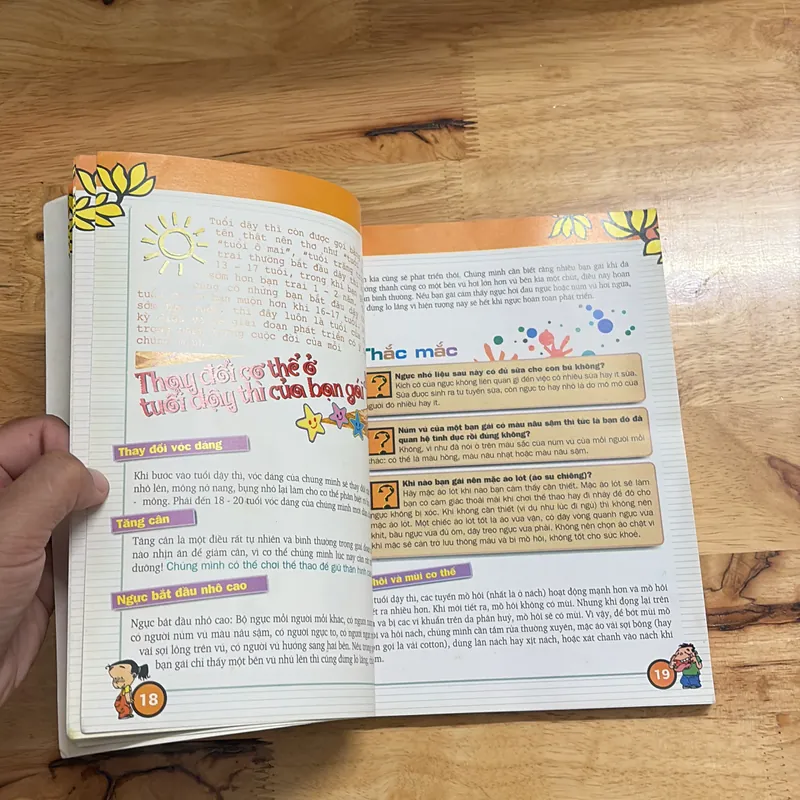 Tuổi dậy thì còn được gọi bằng
tên thật nên thơ như
"tuổi ô mai", "tuổi trăng
trai thường bắt đầu dậy thì
13 - 17 tuổi, trong khi
sớm hơn bạn trai 1 - 2 năm
có những bạn bắt đầu dậy
muộn hơn khi 16-17 tuổi
thì dậy luôn là tuổi
giai đoạn phát triển có
trong cuộc đời của mỗi
chúng
Thay đổi cơ thể ở
tuổi dậy thì của bạn gái
Thay đổi vóc dáng
Khi bước vào tuổi dậy thì, vóc dáng của chúng mình sẽ thay đổi
nhỏ lên, mông nở nang, bụng nhỏ lại làm cho cơ thể phân biệt rõ
- mông. Phải đến 18 - 20 tuổi vóc dáng của chúng mình mới
Tăng cân
Tăng cân là một điều rất tự nhiên và bình thường trong giai đoạn
nào nhịn ăn để giảm cân, vì cơ thể chúng mình lúc này cần rất
dưỡng! Chúng mình có thể chơi thể thao để giữ thân hình
Ngực bắt đầu nhô cao
Ngực bắt đầu nhô cao: Bộ ngực mỗi người mỗi khác, có người
có người núm vú màu nâu sậm, có người ngực to, có người
vài sợi lông trên vú, có người vú hướng sang hai bên. Nếu
bạn gái chỉ thấy một bên vú nhú lên thì cũng đừng lo lắng,
18
kia cũng sẽ phát triển thôi. Chúng mình cần biết rằng nhiều bạn gái khi đã
thành cũng có một bên vú hơi lớn hơn vú bên kia một chút, điều này hoàn
bình thường. Nếu bạn gái cảm thấy ngực hơi đau ngực hoặc núm vú hơi ngứa,
đừng lo lắng vì hiện tượng này sẽ hết khi ngực hoàn toàn phát triển.
Thắc mắc
Ngực nhỏ liệu sau này có đủ sữa cho con bú không?
Kích cỡ của ngực không liên quan gì đến việc có nhiều sữa hay ít sữa.
Sữa được sinh ra từ tuyến sữa, còn ngực to hay nhỏ là do mô mỡ của
người đó nhiều hay ít.
Núm vú của một bạn gái có màu nâu sậm thì tức là bạn đó đã
quan hệ tình dục rồi đúng không?
Không, vì như đã nói ở trên màu sắc của núm vú của mỗi người mỗi
khác: có thể là màu hồng, màu nâu nhạt hoặc màu nâu sậm.
Khi nào bạn gái nên mặc áo lót (áo su chiêng)?
Hãy mặc áo lót khi nào bạn cảm thấy cần thiết. Mặc áo lót sẽ làm
bạn có cảm giác thoải mái khi chơi thể thao hay đi nhảy để đỡ cho
ngực không bị xóc. Khi không cần thiết (ví dụ như lúc đi ngủ) thì không nên
mặc áo lót. Một chiếc áo lót tốt là áo vừa vặn, có dây vòng quanh ngực vừa
khít, bầu ngực vừa đủ ôm, dây treo ngực vừa phải. Không nên chọn áo chật vì
khi mặc sẽ cản trở lưu thông máu và bí mồ hôi, không tốt cho sức khoẻ.
hôi và mùi cơ thể
tuổi dậy thì, các tuyến mồ hôi (nhất là ở nách) hoạt động mạnh hơn và mồ hôi
ra nhiều hơn. Khi mới tiết ra, mồ hôi không có mùi. Nhưng khi đọng lại trên
và bị các vi khuẩn trên da phân huỷ, mồ hôi sẽ có mùi. Vì vậy, để bớt mùi mồ
và hôi nách, chúng mình cần tắm rửa thường xuyên, mặc áo vải sợi bông (hay
gọi là vải cotton), dùng lăn nách hay xịt nách, hoặc xát chanh vào nách khi
19